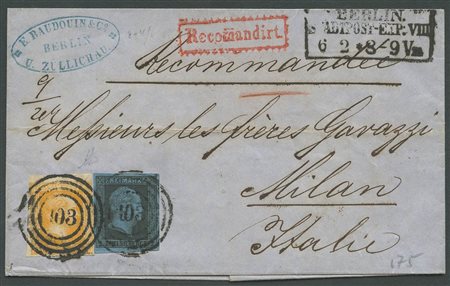 E. BAUDOUIN & Cº
BERLIN
U. ZÜLLICHAU.
Recomandirt.
BERLIN.
STADTPOST-EXP. VIII
6 2 * 8-9 V m
Recommandée
Messieurs les frères Gavazzi
Milan
Italie
103
103
FREIMARKE
175